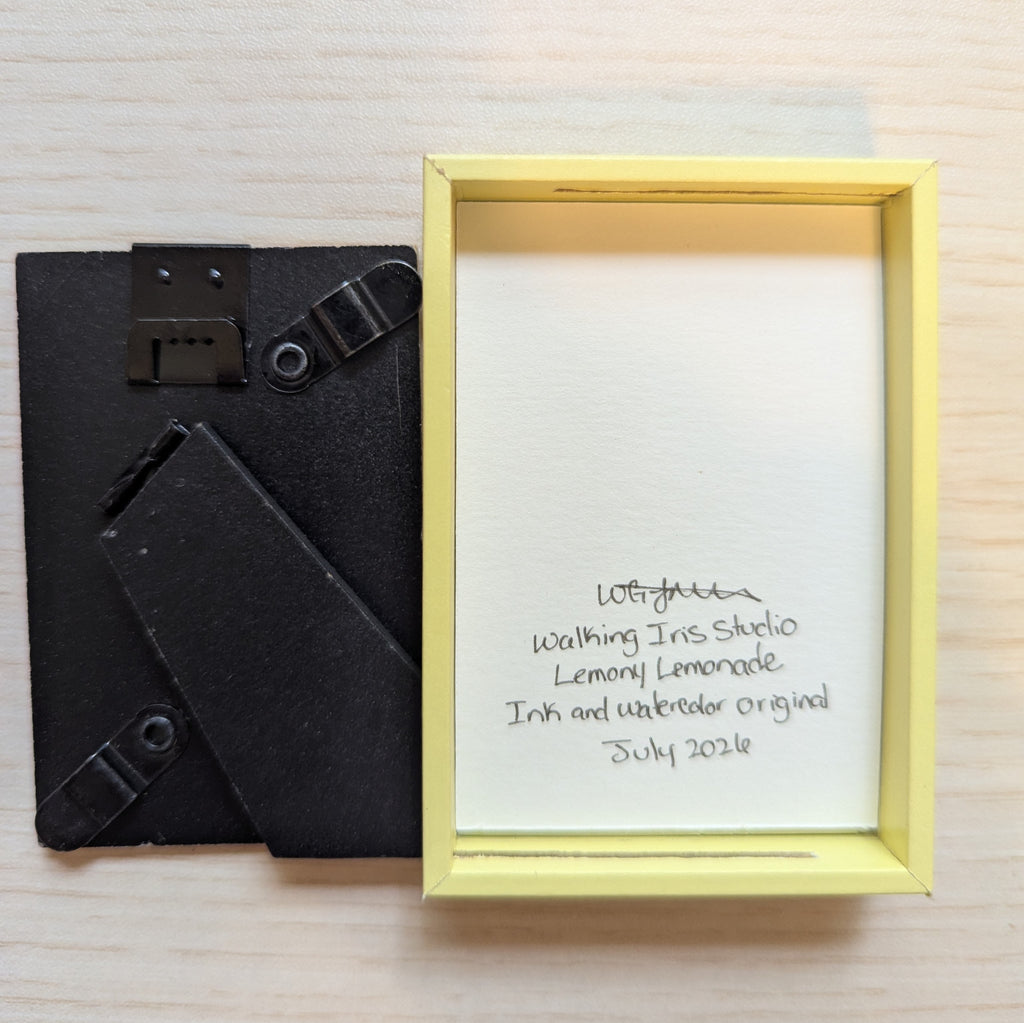 Walking Iris Studio
Lemony Lemonade
Ink and watercolor original
July 2026